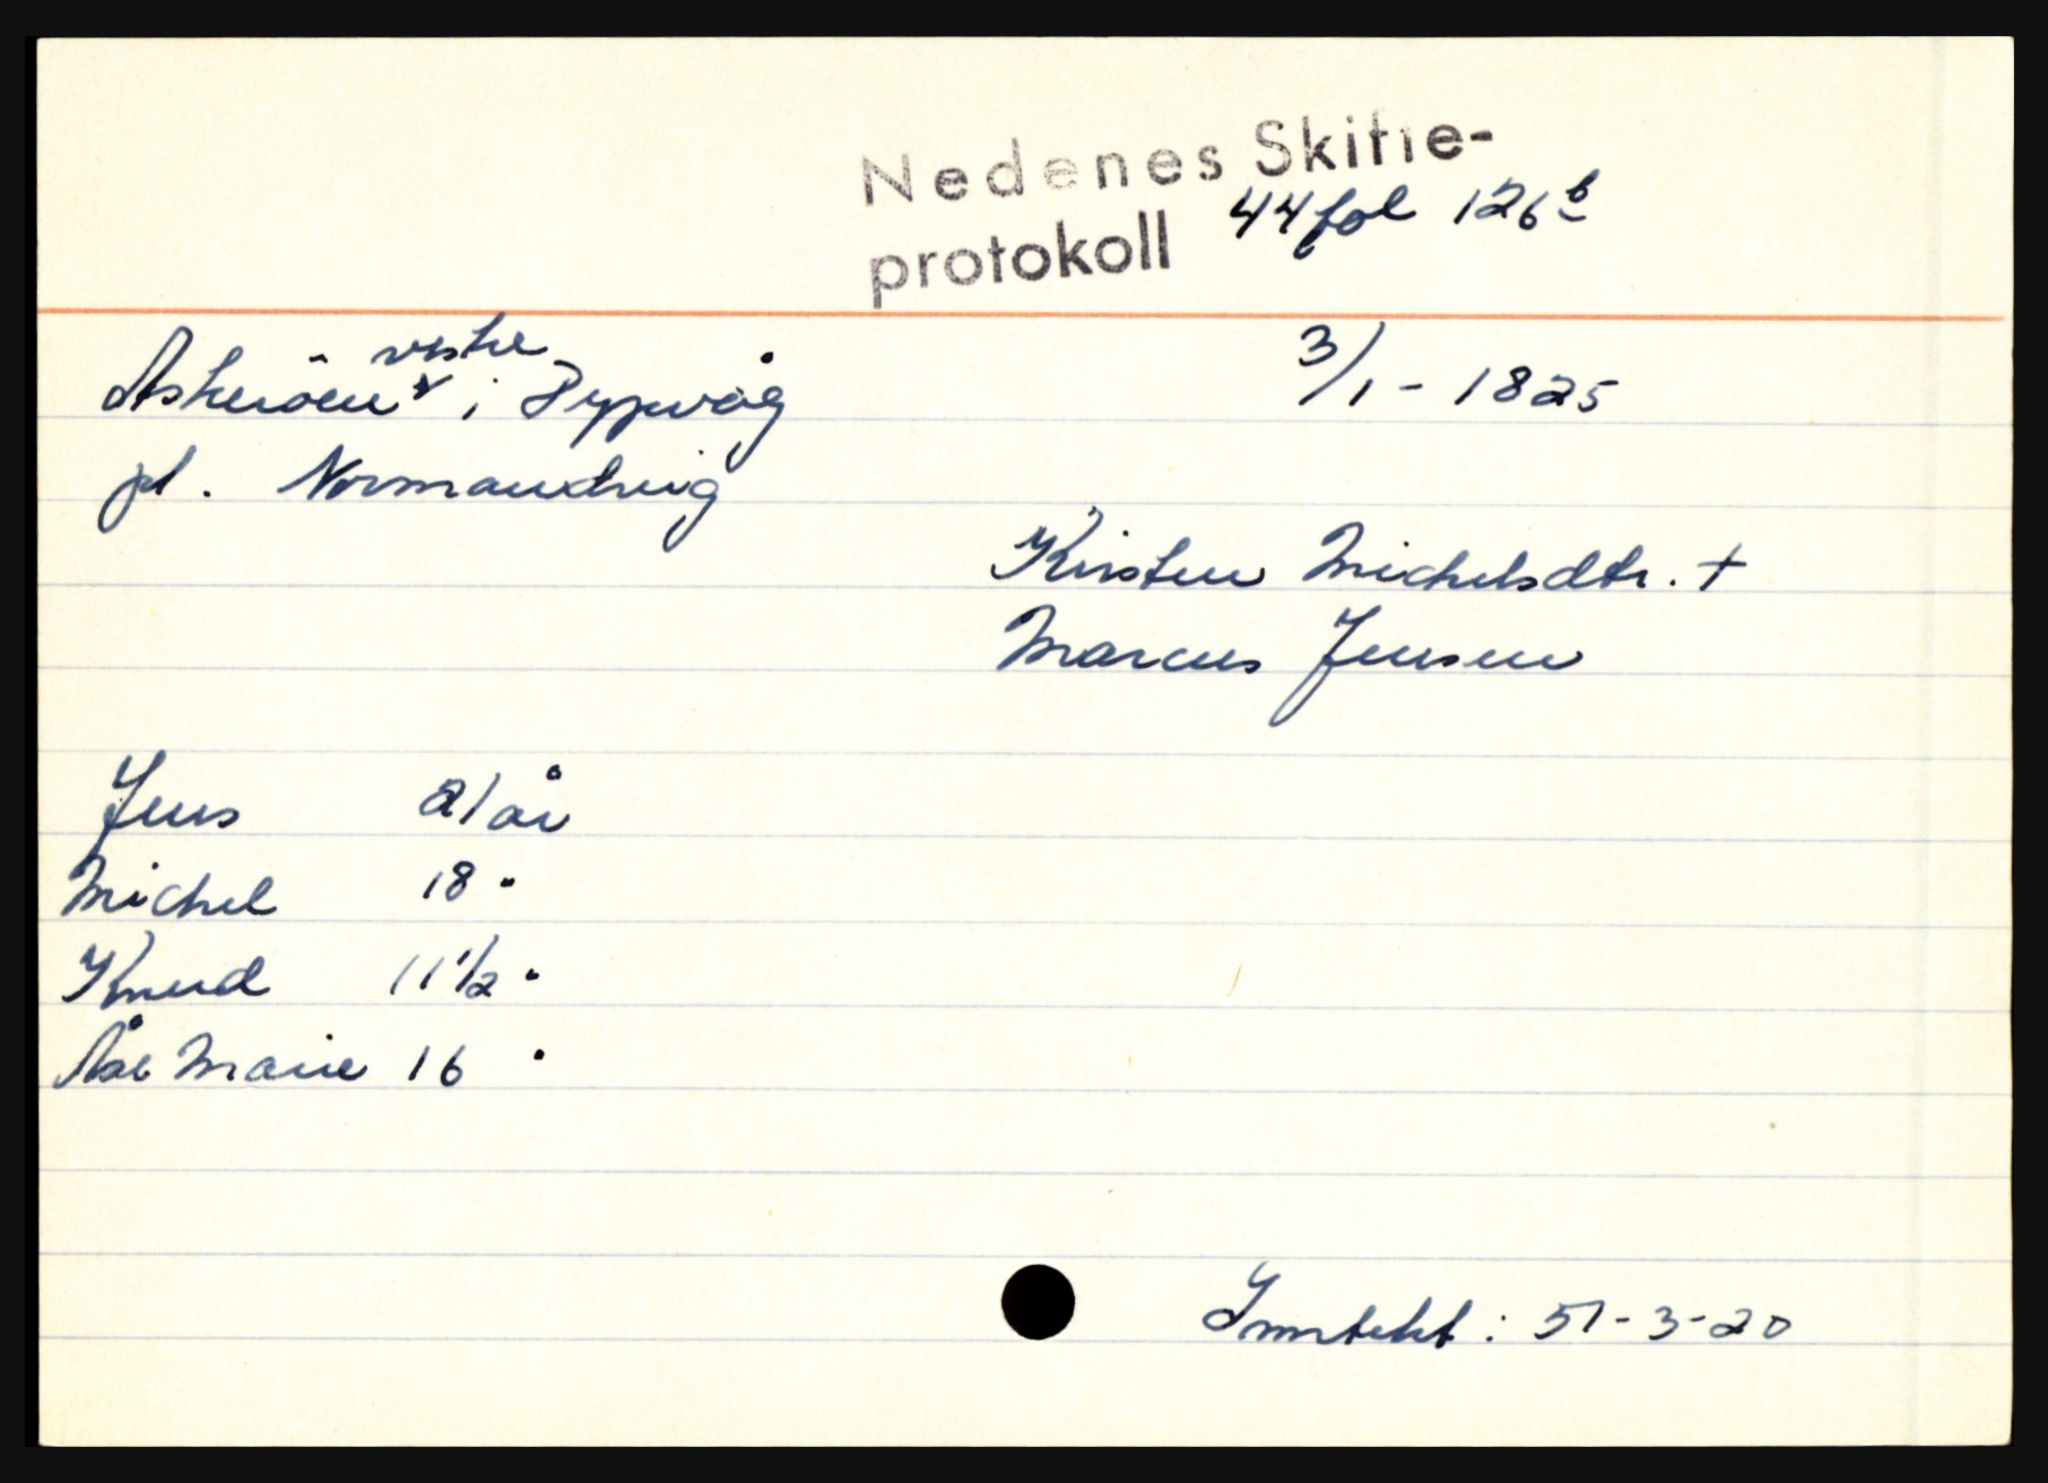 Nedenes Skifte-
protokoll 44 fol 126 b
Askerøen vestre i Dypvåg 3/1 - 1825
pl. Normandvig
Kirsten Michelsdtr. +
Marcus Jensen
Jens 21 år
Michel 18 "
Knud 11 1/2 "
Åse Marie 16 "
Inntekt : 51-3-20